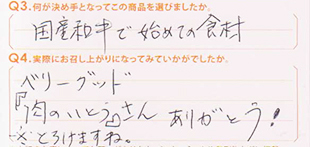 Q3.何が決め手となってこの商品を選びましたか。
国産和牛で始めての食材
Q4.実際にお召し上がりになってみていかがでしたか。
ベリーグッド
『肉のいとう』さん ありがとう!
とろけますね。